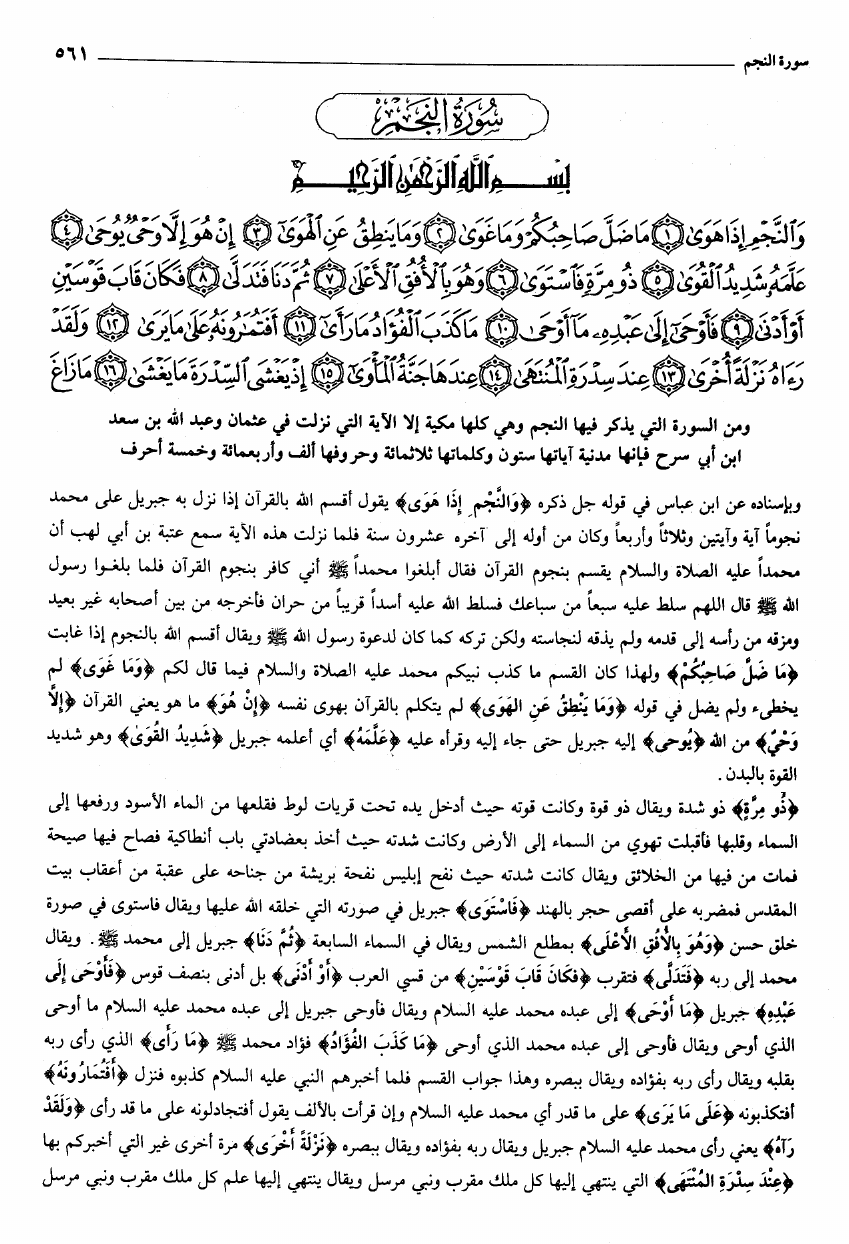 سورة النجم ٥٦١
سُورَةُ النَّجْمِ
بِسْمِ ٱللَّهِ ٱلرَّحْمَٰنِ ٱلرَّحِيمِ
وَٱلنَّجْمِ إِذَا هَوَىٰ ١ مَا ضَلَّ صَاحِبُكُمْ وَمَا غَوَىٰ ٢ وَمَا يَنطِقُ عَنِ ٱلْهَوَىٰٓ ٣ إِنْ هُوَ إِلَّا وَحْىٌ يُوحَىٰ ٤
عَلَّمَهُۥ شَدِيدُ ٱلْقُوَىٰ ٥ ذُو مِرَّةٍ فَٱسْتَوَىٰ ٦ وَهُوَ بِٱلْأُفُقِ ٱلْأَعْلَىٰ ٧ ثُمَّ دَنَا فَتَدَلَّىٰ ٨ فَكَانَ قَابَ قَوْسَيْنِ
أَوْ أَدْنَىٰ ٩ فَأَوْحَىٰٓ إِلَىٰ عَبْدِهِۦ مَآ أَوْحَىٰ ١٠ مَا كَذَبَ ٱلْفُؤَادُ مَا رَأَىٰٓ ١١ أَفَتُمَٰرُونَهُۥ عَلَىٰ مَا يَرَىٰ ١٢ وَلَقَدْ
رَءَاهُ نَزْلَةً أُخْرَىٰ ١٣ عِندَ سِدْرَةِ ٱلْمُنتَهَىٰ ١٤ عِندَهَا جَنَّةُ ٱلْمَأْوَىٰٓ ١٥ إِذْ يَغْشَى ٱلسِّدْرَةَ مَا يَغْشَىٰ ١٦ مَا زَاغَ
ومن السورة التي يذكر فيها النجم وهي كلها مكية إلا الآية التي نزلت في عثمان وعبد الله بن سعد
ابن أبي سرح فإنها مدنية آياتها ستون وكلماتها ثلاثمائة وحروفها ألف وأربعمائة وخمسة أحرف
وبإسناده عن ابن عباس في قوله جل ذكره ﴿وَالنَّجْمِ إِذَا هَوَى﴾ يقول أقسم الله بالقرآن إذا نزل به جبريل على محمد
نجوماً آية وآيتين وثلاثاً وأربعاً وكان من أوله إلى آخره عشرون سنة فلما نزلت هذه الآية سمع عتبة بن أبي لهب أن
محمداً عليه الصلاة والسلام يقسم بنجوم القرآن فقال أبلغوا محمداً ﷺ أني كافر بنجوم القرآن فلما بلغوا رسول
الله ﷺ قال اللهم سلط عليه سبعاً من سباعك فسلط الله عليه أسداً قريباً من حران فأخرجه من بين أصحابه غير بعيد
ومزقه من رأسه إلى قدمه ولم يذقه لنجاسته ولكن تركه كما كان لدعوة رسول الله ﷺ ويقال أقسم الله بالنجوم إذا غابت
﴿مَا ضَلَّ صَاحِبُكُمْ﴾ ولهذا كان القسم ما كذب نبيكم محمد عليه الصلاة والسلام فيما قال لكم ﴿وَمَا غَوَى﴾ لم
يخطىء ولم يضل في قوله ﴿وَمَا يَنْطِقُ عَنِ الهَوَى﴾ لم يتكلم بالقرآن بهوى نفسه ﴿إِنْ هُوَ﴾ ما هو يعني القرآن ﴿إِلَّا
وَحْيٌ﴾ من الله ﴿يُوحى﴾ إليه جبريل حتى جاء إليه وقرأه عليه ﴿عَلَّمَهُ﴾ أي أعلمه جبريل ﴿شَدِيدُ القُوَىٰ﴾ وهو شديد
القوة بالبدن .
﴿ذُو مِرَّةٍ﴾ ذو شدة ويقال ذو قوة وكانت قوته حيث أدخل يده تحت قريات لوط فقلعها من الماء الأسود ورفعها إلى
السماء وقلبها فأقبلت تهوي من السماء إلى الأرض وكانت شدته حيث أخذ بعضادتي باب أنطاكية فصاح فيها صيحة
فمات من فيها من الخلائق ويقال كانت شدته حيث نفح إبليس نفحة بريشة من جناحه على عقبة من أعقاب بيت
المقدس فمضربه على أقصى حجر بالهند ﴿فَاسْتَوَى﴾ جبريل في صورته التي خلقه الله عليها ويقال فاستوى في صورة
خلق حسن ﴿وَهُوَ بِالأُفُقِ الأَعْلَى﴾ بمطلع الشمس ويقال في السماء السابعة ﴿ثُمَّ دَنَا﴾ جبريل إلى محمد ﷺ . ويقال
محمد إلى ربه ﴿فَتَدَلَّى﴾ فتقرب ﴿فَكَانَ قَابَ قَوْسَيْنِ﴾ من قسي العرب ﴿أَوْ أَدْنَى﴾ بل أدنى بنصف قوس ﴿فَأَوْحَى إِلَى
عَبْدِهِ﴾ جبريل ﴿مَا أَوْحَى﴾ إلى عبده محمد عليه السلام ويقال فأوحى جبريل إلى عبده محمد عليه السلام ما أوحى
الذي أوحى ويقال فأوحى إلى عبده محمد الذي أوحى ﴿مَا كَذَبَ الفُؤَادُ﴾ فؤاد محمد ﷺ ﴿مَا رَأَى﴾ الذي رأى ربه
بقلبه ويقال رأى ربه بفؤاده ويقال ببصره وهذا جواب القسم فلما أخبرهم النبي عليه السلام كذبوه فنزل ﴿أَفَتُمَارُونَهُ﴾
أفتكذبونه ﴿عَلَى مَا يَرَى﴾ على ما قدر أي محمد عليه السلام وإن قرأت بالألف يقول أفتجادلونه على ما قد رأى ﴿وَلَقَدْ
رَآهُ﴾ يعني رأى محمد عليه السلام جبريل ويقال ربه بفؤاده ويقال ببصره ﴿نَزْلَةً أُخْرَى﴾ مرة أخرى غير التي أخبركم بها
﴿عِنْدَ سِدْرَةِ المُنْتَهَى﴾ التي ينتهي إليها كل ملك مقرب ونبي مرسل ويقال ينتهي إليها علم كل ملك مقرب ونبي مرسل